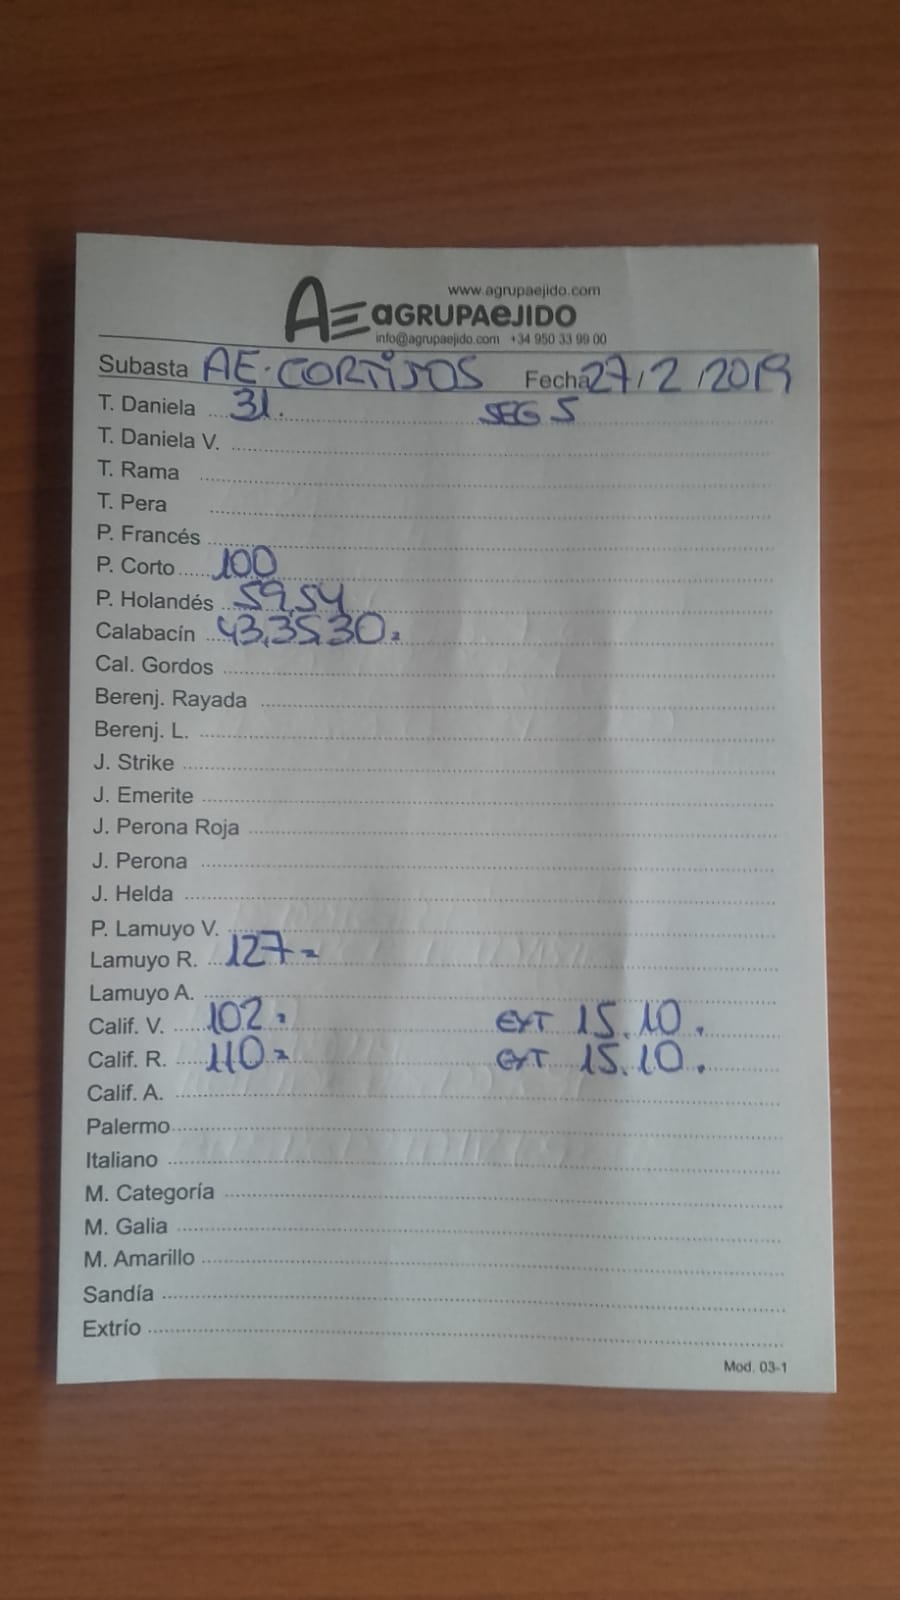 www.agrupaejido.com
AE aGRUPAeJIDO
info@agrupaejido.com +34 950 33 99 00
Subasta AE. CORTIJOS Fecha 27/2/2019
T. Daniela 31. SEG 5
T. Daniela V.
T. Rama
T. Pera
P. Francés
P. Corto 100
P. Holandés 59,54
Calabacín 43,35,30.
Cal. Gordos
Berenj. Rayada
Berenj. L.
J. Strike
J. Emerite
J. Perona Roja
J. Perona
J. Helda
P. Lamuyo V.
Lamuyo R. 127
Lamuyo A.
Calif. V. 102. EXT 15.10.
Calif. R. 110 EXT 15.10.
Calif. A.
Palermo
Italiano
M. Categoría
M. Galia
M. Amarillo
Sandía
Extrío
Mod. 03-1